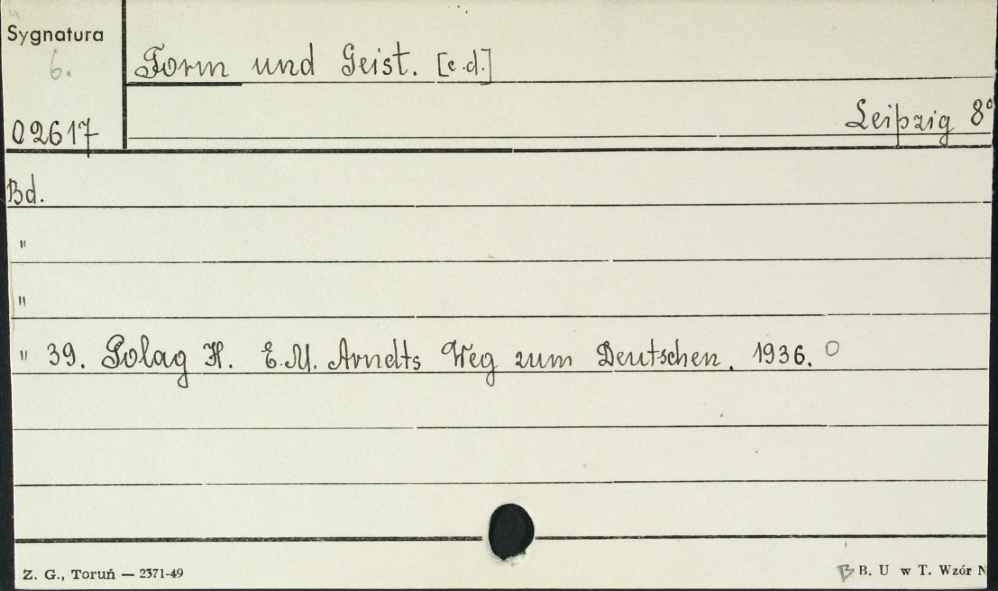 Sygnatura
6.
Form und Geist. [e.d.]
02617
Leipzig 8°
Bd.
"
"
" 39. Polag H. E.M. Arndts Weg zum Deutschen. 1936. O
Z. G., Toruń — 2371-49
B. U w T. Wzór N